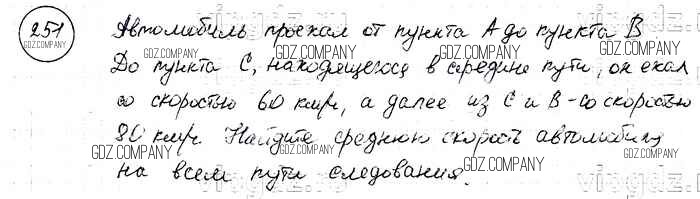 251
Автомобиль проехал от пункта A до пункта B
До пункта C, находящегося в середине пути, он ехал
со скоростью 60 км/ч, а далее из C и B - со скоростью
80 км/ч. Найдите среднюю скорость автомобиля
на всем пути следования.
GDZ.COMPANY
GDZ.COMPANY
GDZ.COMPANY
GDZ.COMPANY
GDZ.COMPANY
GDZ.COMPANY
GDZ.COMPANY
GDZ.COMPANY
GDZ.COMPANY